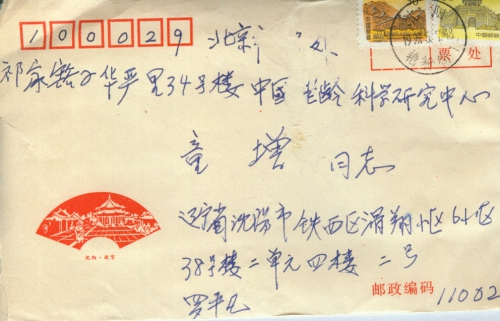 100029 北京
票处
祁家豁子华严里34号楼中国老龄科学研究中心
童增 同志
辽宁省沈阳市铁西区滑翔小区6小区
38号楼二单元四楼二号
沈阳·故宫
邮政编码 11002
罗平凡